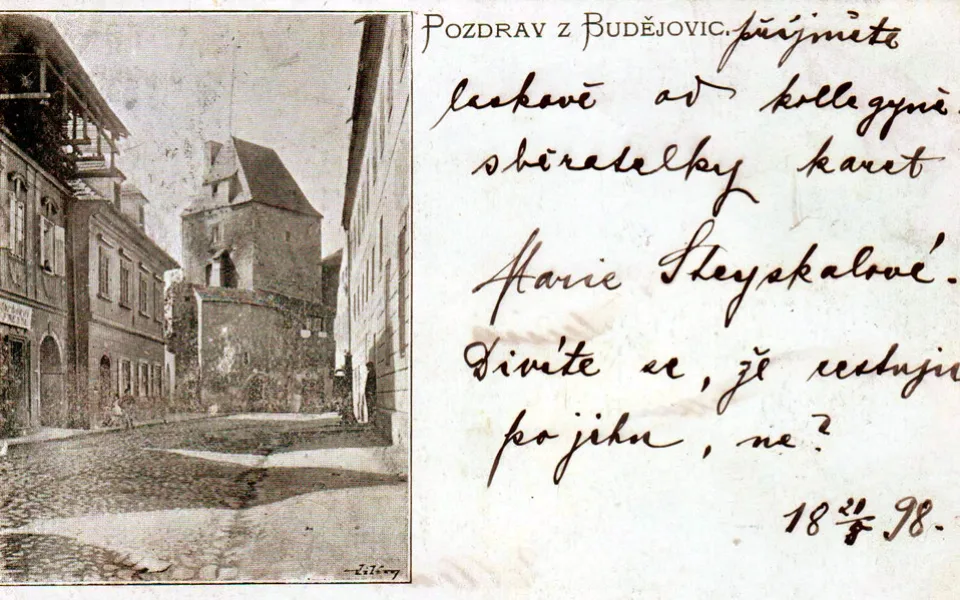 Pozdrav z Budějovic. přijměte
laskavě od kollegyně
sběratelky karet
Marie Steyskalové.
Divíte se, že cestuju
po jihu, ne?
18 20/8 98.